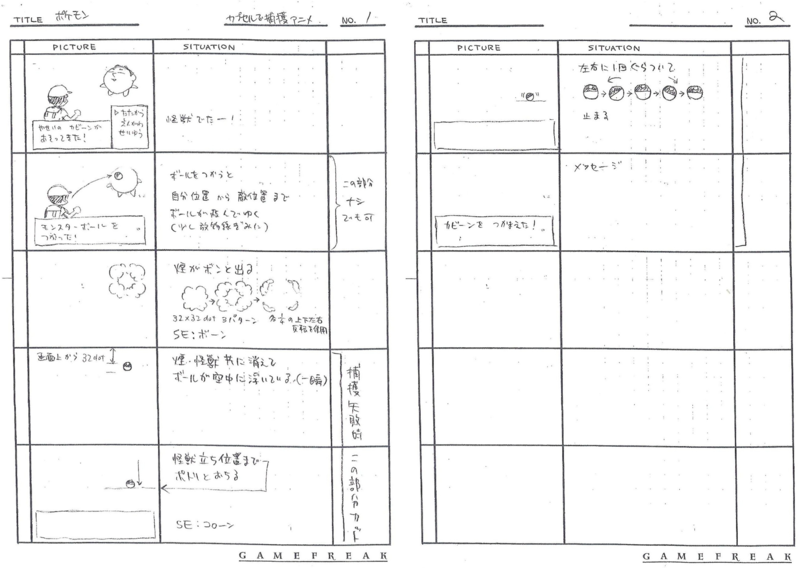 TITLE ポケモン
カプセルで捕獲アニメ
NO. 1
PICTURE
SITUATION
やせいの カビーンが
おそってきた!
▷たたかう
せりふう
怪獣でたー!
モンスターボールを
つかった!
ボールをつかうと
自分位置から敵位置まで
ボールが飛んでゆく
(少し放物線ぎみに)
この部分
ナシ
でも可
煙がボンと出る
32×32dot 3パターン
各¼の上下左右
反転を使用
SE:ボーン
画面上から32dot
煙・怪獣共に消えて
ボールが空中に浮いている.(一瞬)
怪獣立ち位置まで
ポトリとおちる
SE:コローン
捕獲失敗時
この部分カット
GAMEFREAK
TITLE
NO. 2
PICTURE
SITUATION
左右に1回ぐらついて
止まる
カビーンを つかまえた!
メッセージ
GAMEFREAK